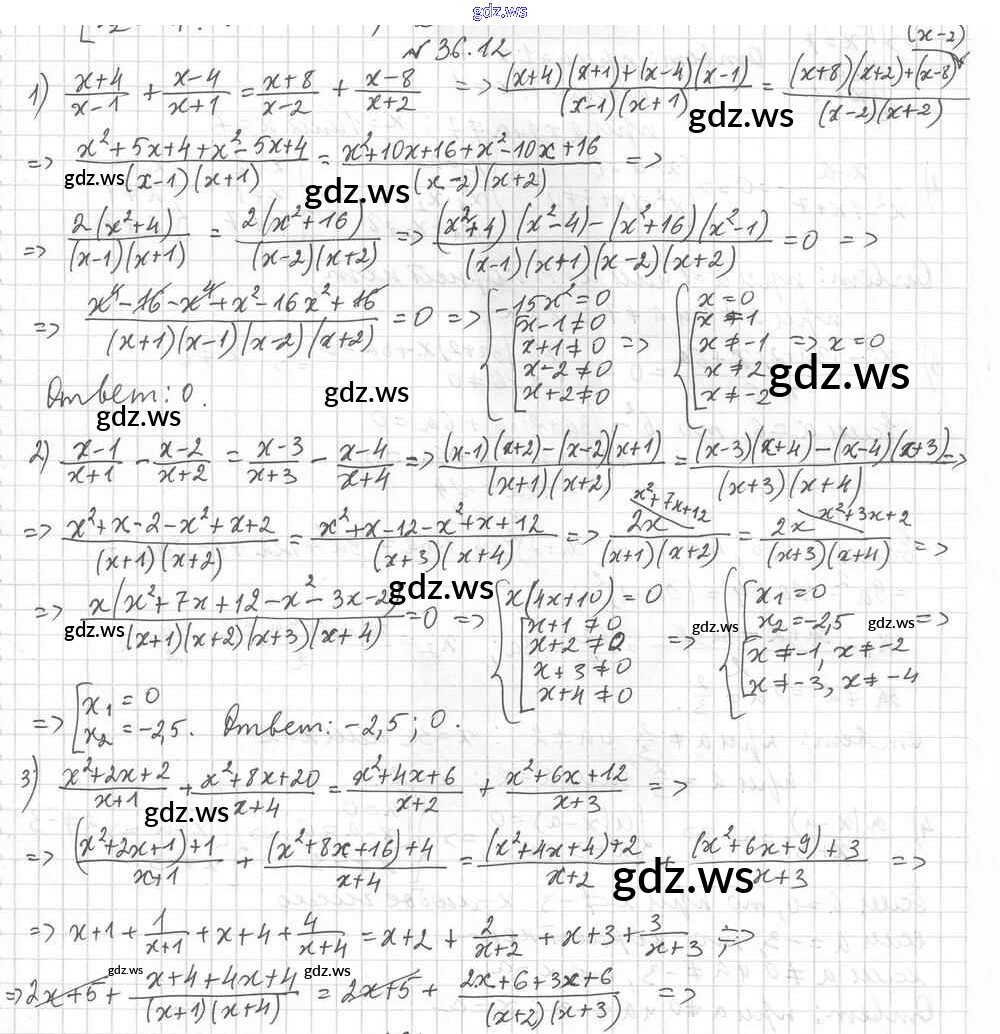 gdz.ws
№ 36.12
1) (x+4)/(x-1) + (x-4)/(x+1) = (x+8)/(x-2) + (x-8)/(x+2) => ((x+4)(x+1)+(x-4)(x-1))/((x-1)(x+1)) = ((x+8)(x+2)+(x-8)(x-2))/((x-2)(x+2))
gdz.ws
=> (x²+5x+4+x²-5x+4)/((x-1)(x+1)) = (x²+10x+16+x²-10x+16)/((x-2)(x+2)) =>
gdz.ws gdz.ws
=> 2(x²+4)/((x-1)(x+1)) = 2(x²+16)/((x-2)(x+2)) => ((x²+4)(x²-4)-(x²+16)(x²-1))/((x-1)(x+1)(x-2)(x+2)) = 0 =>
=> (x⁴-16-x⁴+x²-16x²+16)/((x+1)(x-1)(x-2)(x+2)) = 0 => { -15x²=0 [ x-1≠0 x+1≠0 x-2≠0 x+2≠0 => { x=0 [ x≠1 x≠-1 x≠2 x≠-2 => x=0
Ответ: 0.
gdz.ws gdz.ws gdz.ws
2) (x-1)/(x+1) - (x-2)/(x+2) = (x-3)/(x+3) - (x-4)/(x+4) => ((x-1)(x+2)-(x-2)(x+1))/((x+1)(x+2)) = ((x-3)(x+4)-(x-4)(x+3))/((x+3)(x+4)) =>
=> (x²+x-2-x²+x+2)/((x+1)(x+2)) = (x²+x-12-x²+x+12)/((x+3)(x+4)) => 2x\x²+7x+12/((x+1)(x+2)) = 2x\x²+3x+2/((x+3)(x+4)) =>
=> x(x²+7x+12-x²-3x-2)/((x+1)(x+2)(x+3)(x+4)) = 0 => { x(4x+10)=0 [ x+1≠0 x+2≠0 x+3≠0 x+4≠0 => { [ x₁=0 x₂=-2,5 [ x≠-1, x≠-2 x≠-3, x≠-4 =>
gdz.ws gdz.ws gdz.ws gdz.ws
=> [ x₁=0 x₂=-2,5. Ответ: -2,5; 0.
3) (x²+2x+2)/(x+1) + (x²+8x+20)/(x+4) = (x²+4x+6)/(x+2) + (x²+6x+12)/(x+3) =>
gdz.ws
=> ((x²+2x+1)+1)/(x+1) + ((x²+8x+16)+4)/(x+4) = ((x²+4x+4)+2)/(x+2) + ((x²+6x+9)+3)/(x+3) =>
gdz.ws
=> x+1+1/(x+1)+x+4+4/(x+4) = x+2+2/(x+2)+x+3+3/(x+3) =>
gdz.ws gdz.ws gdz.ws
=> 2x+5+(x+4+4x+4)/((x+1)(x+4)) = 2x+5+(2x+6+3x+6)/((x+2)(x+3)) =>